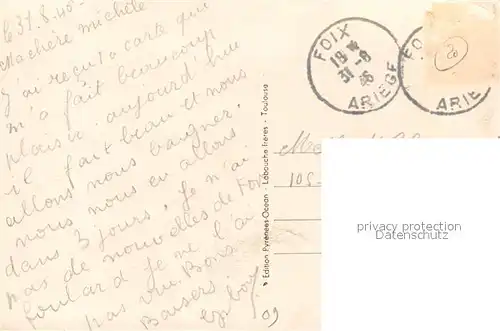 le 31.8.46
Ma chère michèle
J'ai reçu ta carte qui
m'a fait beaucoup
plaisir. aujourd'hui
il fait beau et nous
allons nous baigner,
nous nous en allons
dans 3 jours, je n'ai
pas de nouvelles de
foulard je ne l'ai
pas vu. Bons
Baisers
FOIX
19 H
31-8
46
ARIEGE
FO
ARIE
20
105
Edition Pyrénées-Océan - Labouche Frères - Toulouse
privacy protection
Datenschutz
09